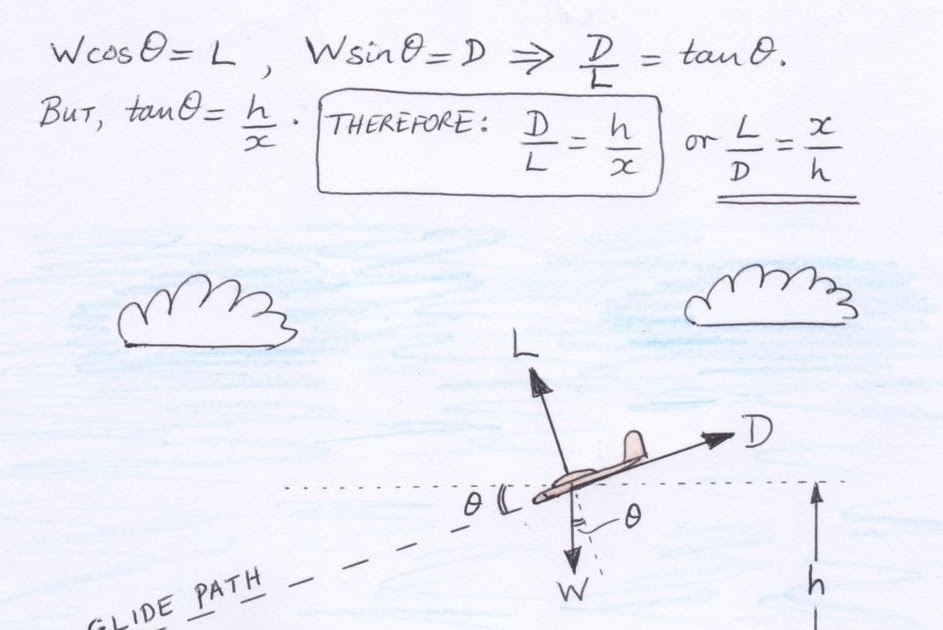 W cos θ = L , W sin θ = D ⇒ D/L = tan θ.
BUT, tan θ = h/x . THEREFORE: D/L = h/x or L/D = x/h
L
D
θ
θ
W
h
GLIDE PATH